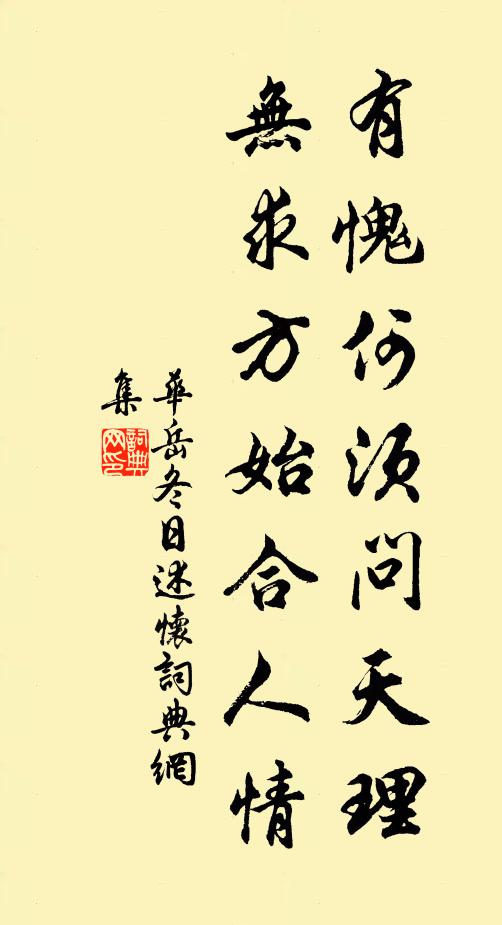 有愧何須問天理
無求方始合人情
華岳冬日述懷詞典網
集
詞典
网印